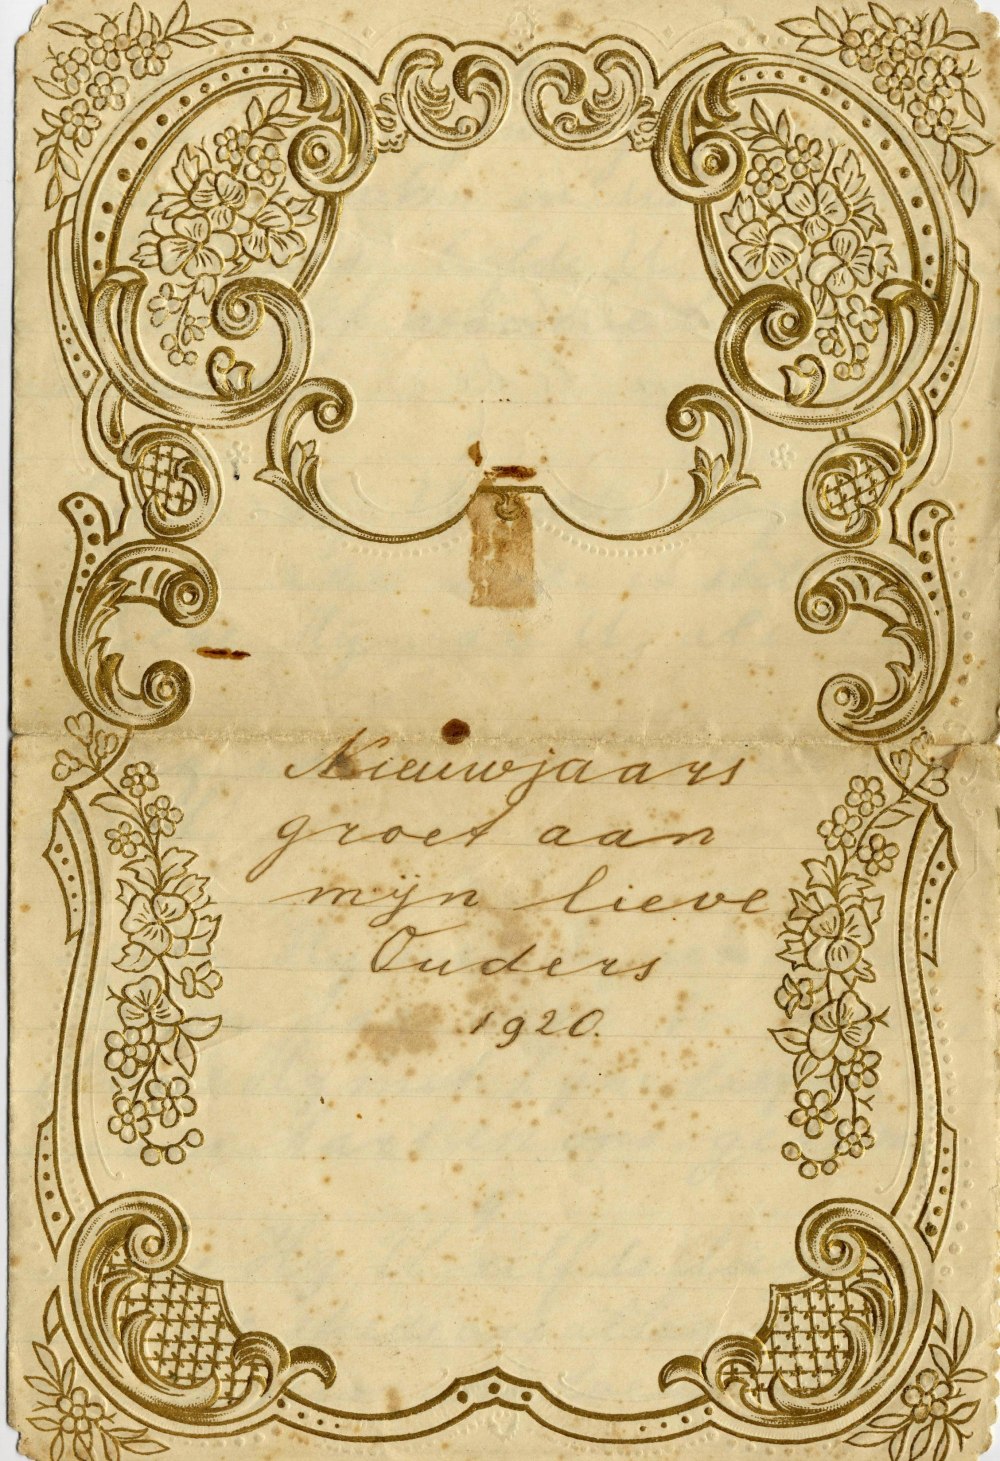 Nieuwjaars
groet aan
mijn lieve
Ouders
1920.